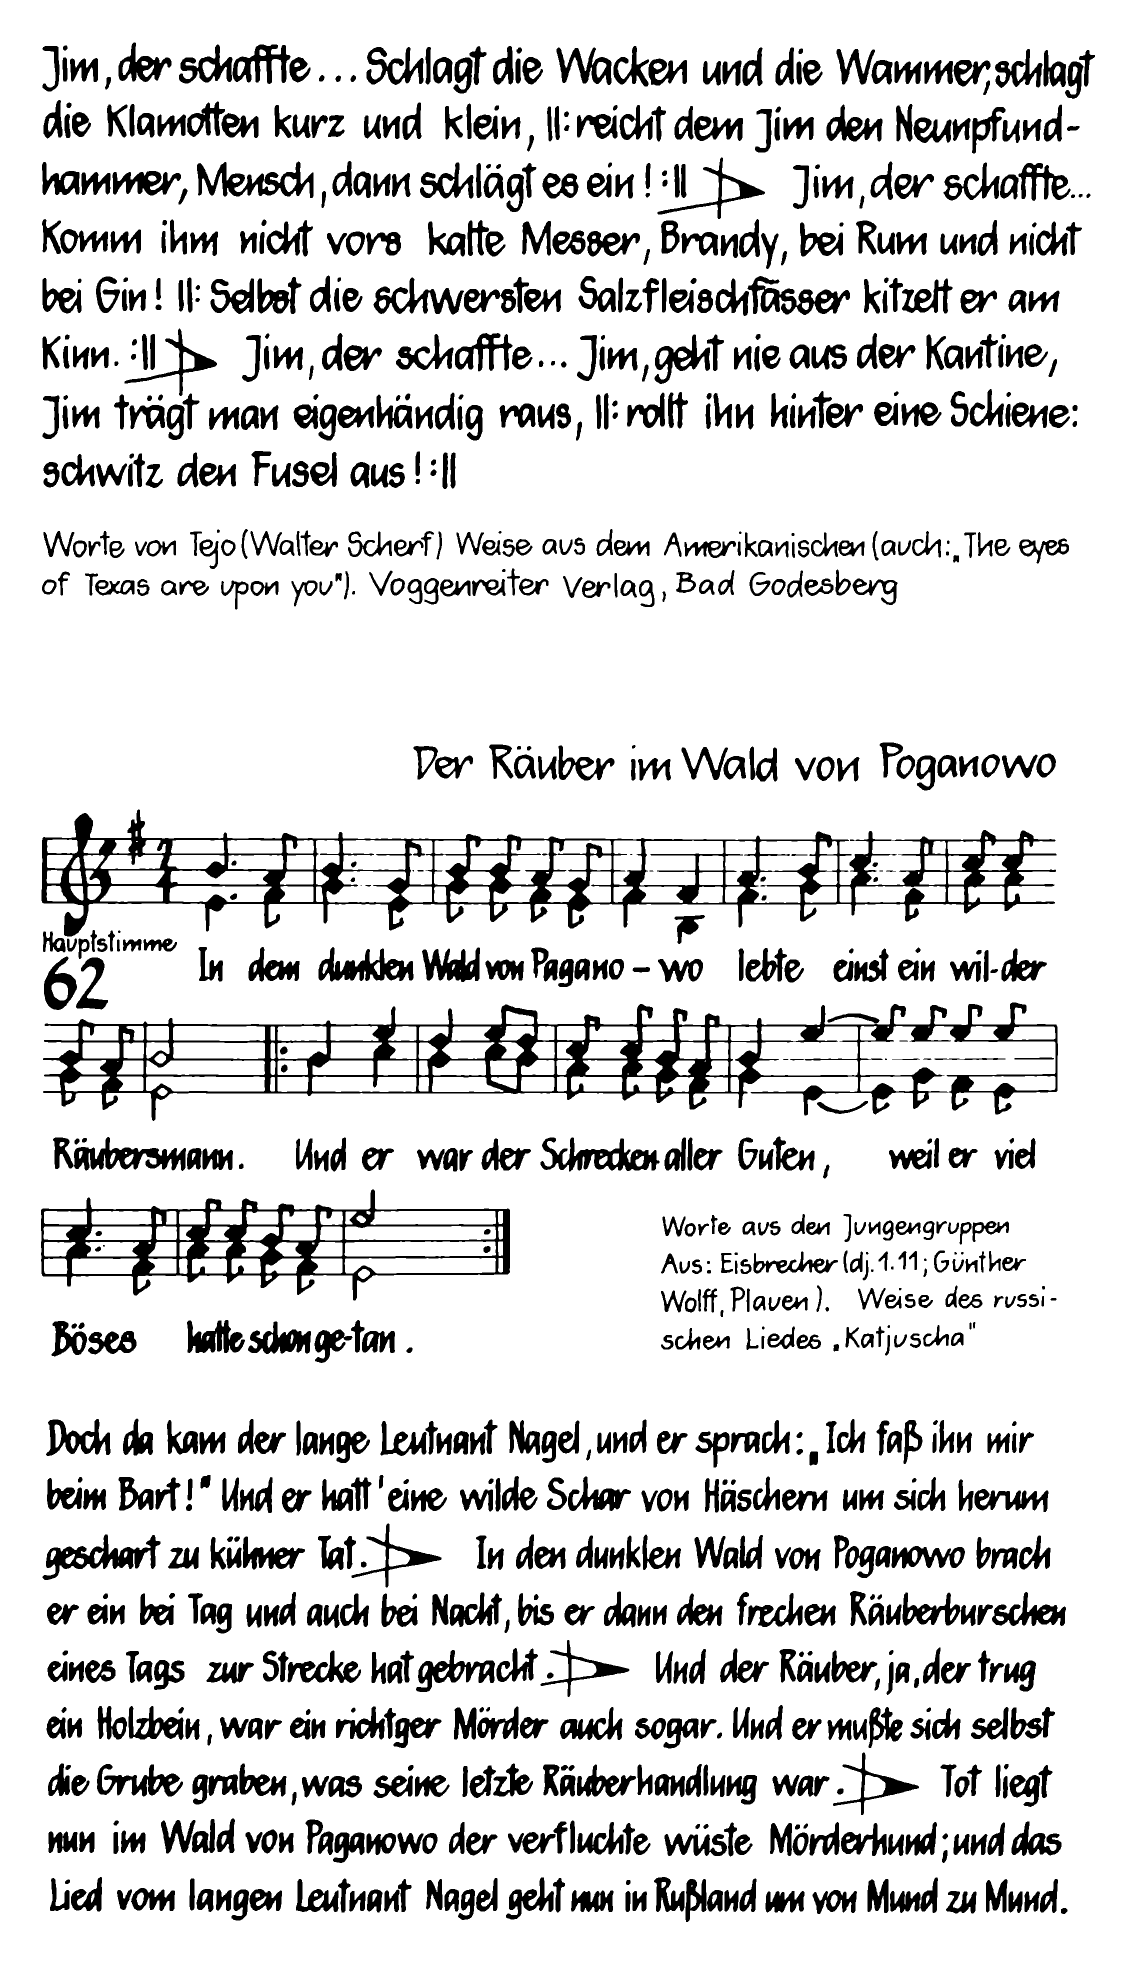 Jim, der schaffte... Schlagt die Wacken und die Wammer, schlagt
die Klamotten kurz und klein, ||: reicht dem Jim den Neunpfund-
hammer, Mensch, dann schlägt es ein! :|| Jim, der schaffte...
Komm ihm nicht vors kalte Messer, Brandy, bei Rum und nicht
bei Gin! ||: Selbst die schwersten Salzfleischfässer kitzelt er am
Kinn. :|| Jim, der schaffte... Jim, geht nie aus der Kantine,
Jim trägt man eigenhändig raus, ||: rollt ihn hinter eine Schiene:
schwitz den Fusel aus! :||
Worte von Tejo (Walter Scherf) Weise aus dem Amerikanischen (auch: „The eyes
of Texas are upon you"). Voggenreiter Verlag, Bad Godesberg
Der Räuber im Wald von Poganowo
2
4
Hauptstimme
62
In dem dunklen Wald von Pagano-wo lebte einst ein wil-der
Räubersmann. Und er war der Schrecken aller Guten, weil er viel
Böses hatte schon ge-tan.
Worte aus den Jungengruppen
Aus: Eisbrecher (dj.1.11; Günther
Wolff, Plauen). Weise des russi-
schen Liedes „Katjuscha"
Doch da kam der lange Leutnant Nagel, und er sprach: „Ich faß ihn mir
beim Bart!" Und er hatt' eine wilde Schar von Häschern um sich herum
geschart zu kühner Tat. In den dunklen Wald von Poganowo brach
er ein bei Tag und auch bei Nacht, bis er dann den frechen Räuberburschen
eines Tags zur Strecke hat gebracht. Und der Räuber, ja, der trug
ein Holzbein, war ein richtger Mörder auch sogar. Und er mußte sich selbst
die Grube graben, was seine letzte Räuberhandlung war. Tot liegt
nun im Wald von Paganowo der verfluchte wüste Mörderhund; und das
Lied vom langen Leutnant Nagel geht nun in Rußland um von Mund zu Mund.